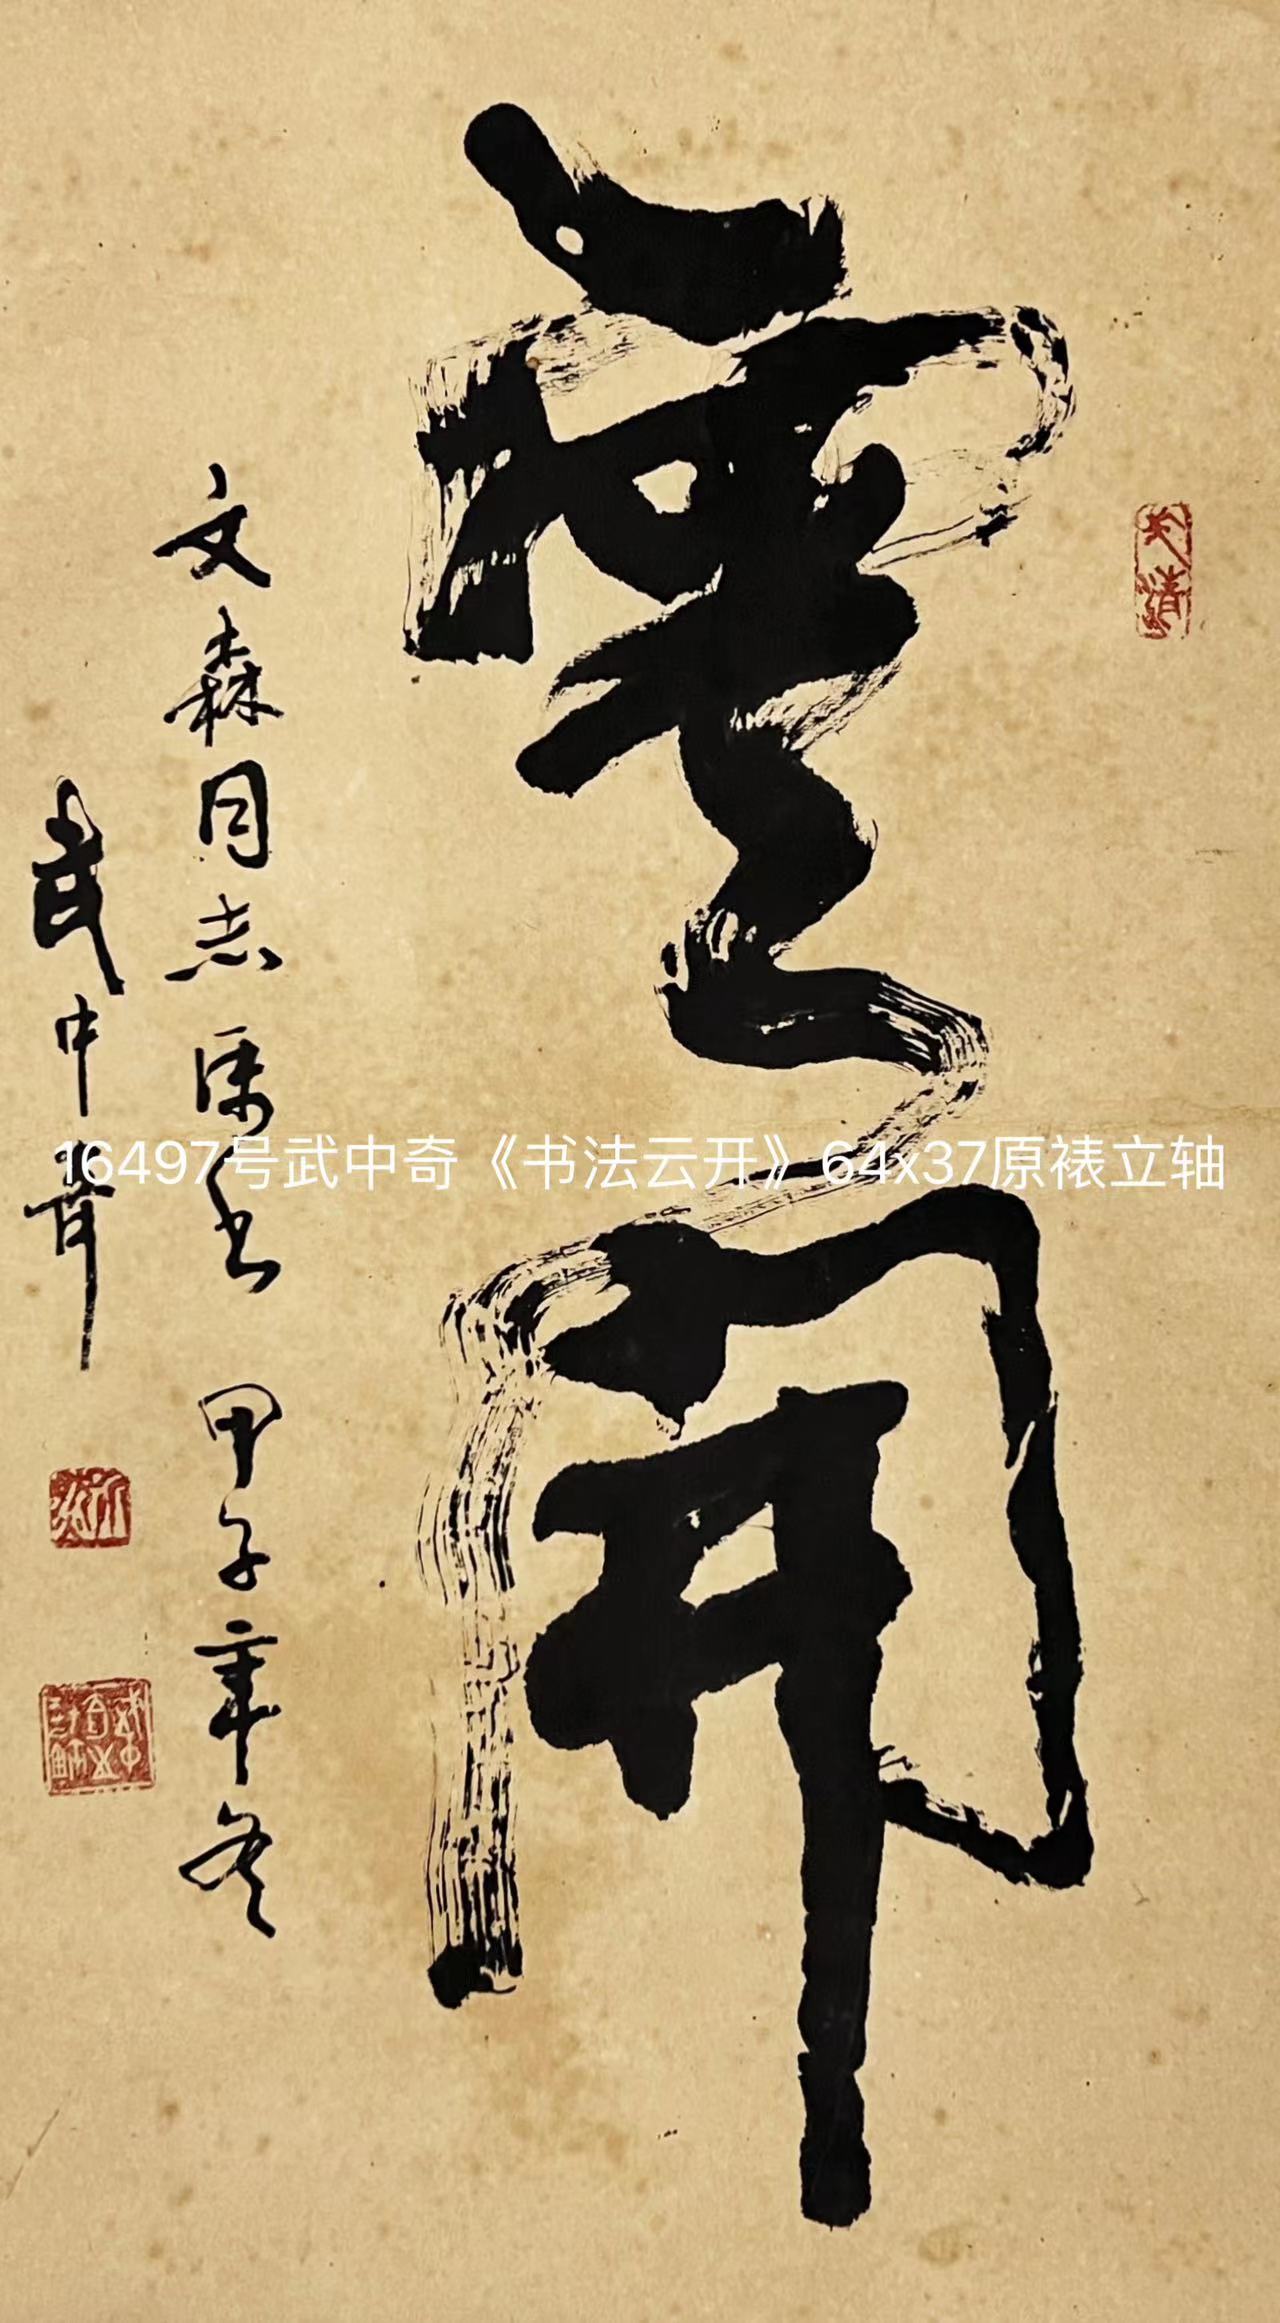 雲開
文森同志屬書 甲子年冬
武中奇
16497号武中奇《书法云开》64x37原裱立轴